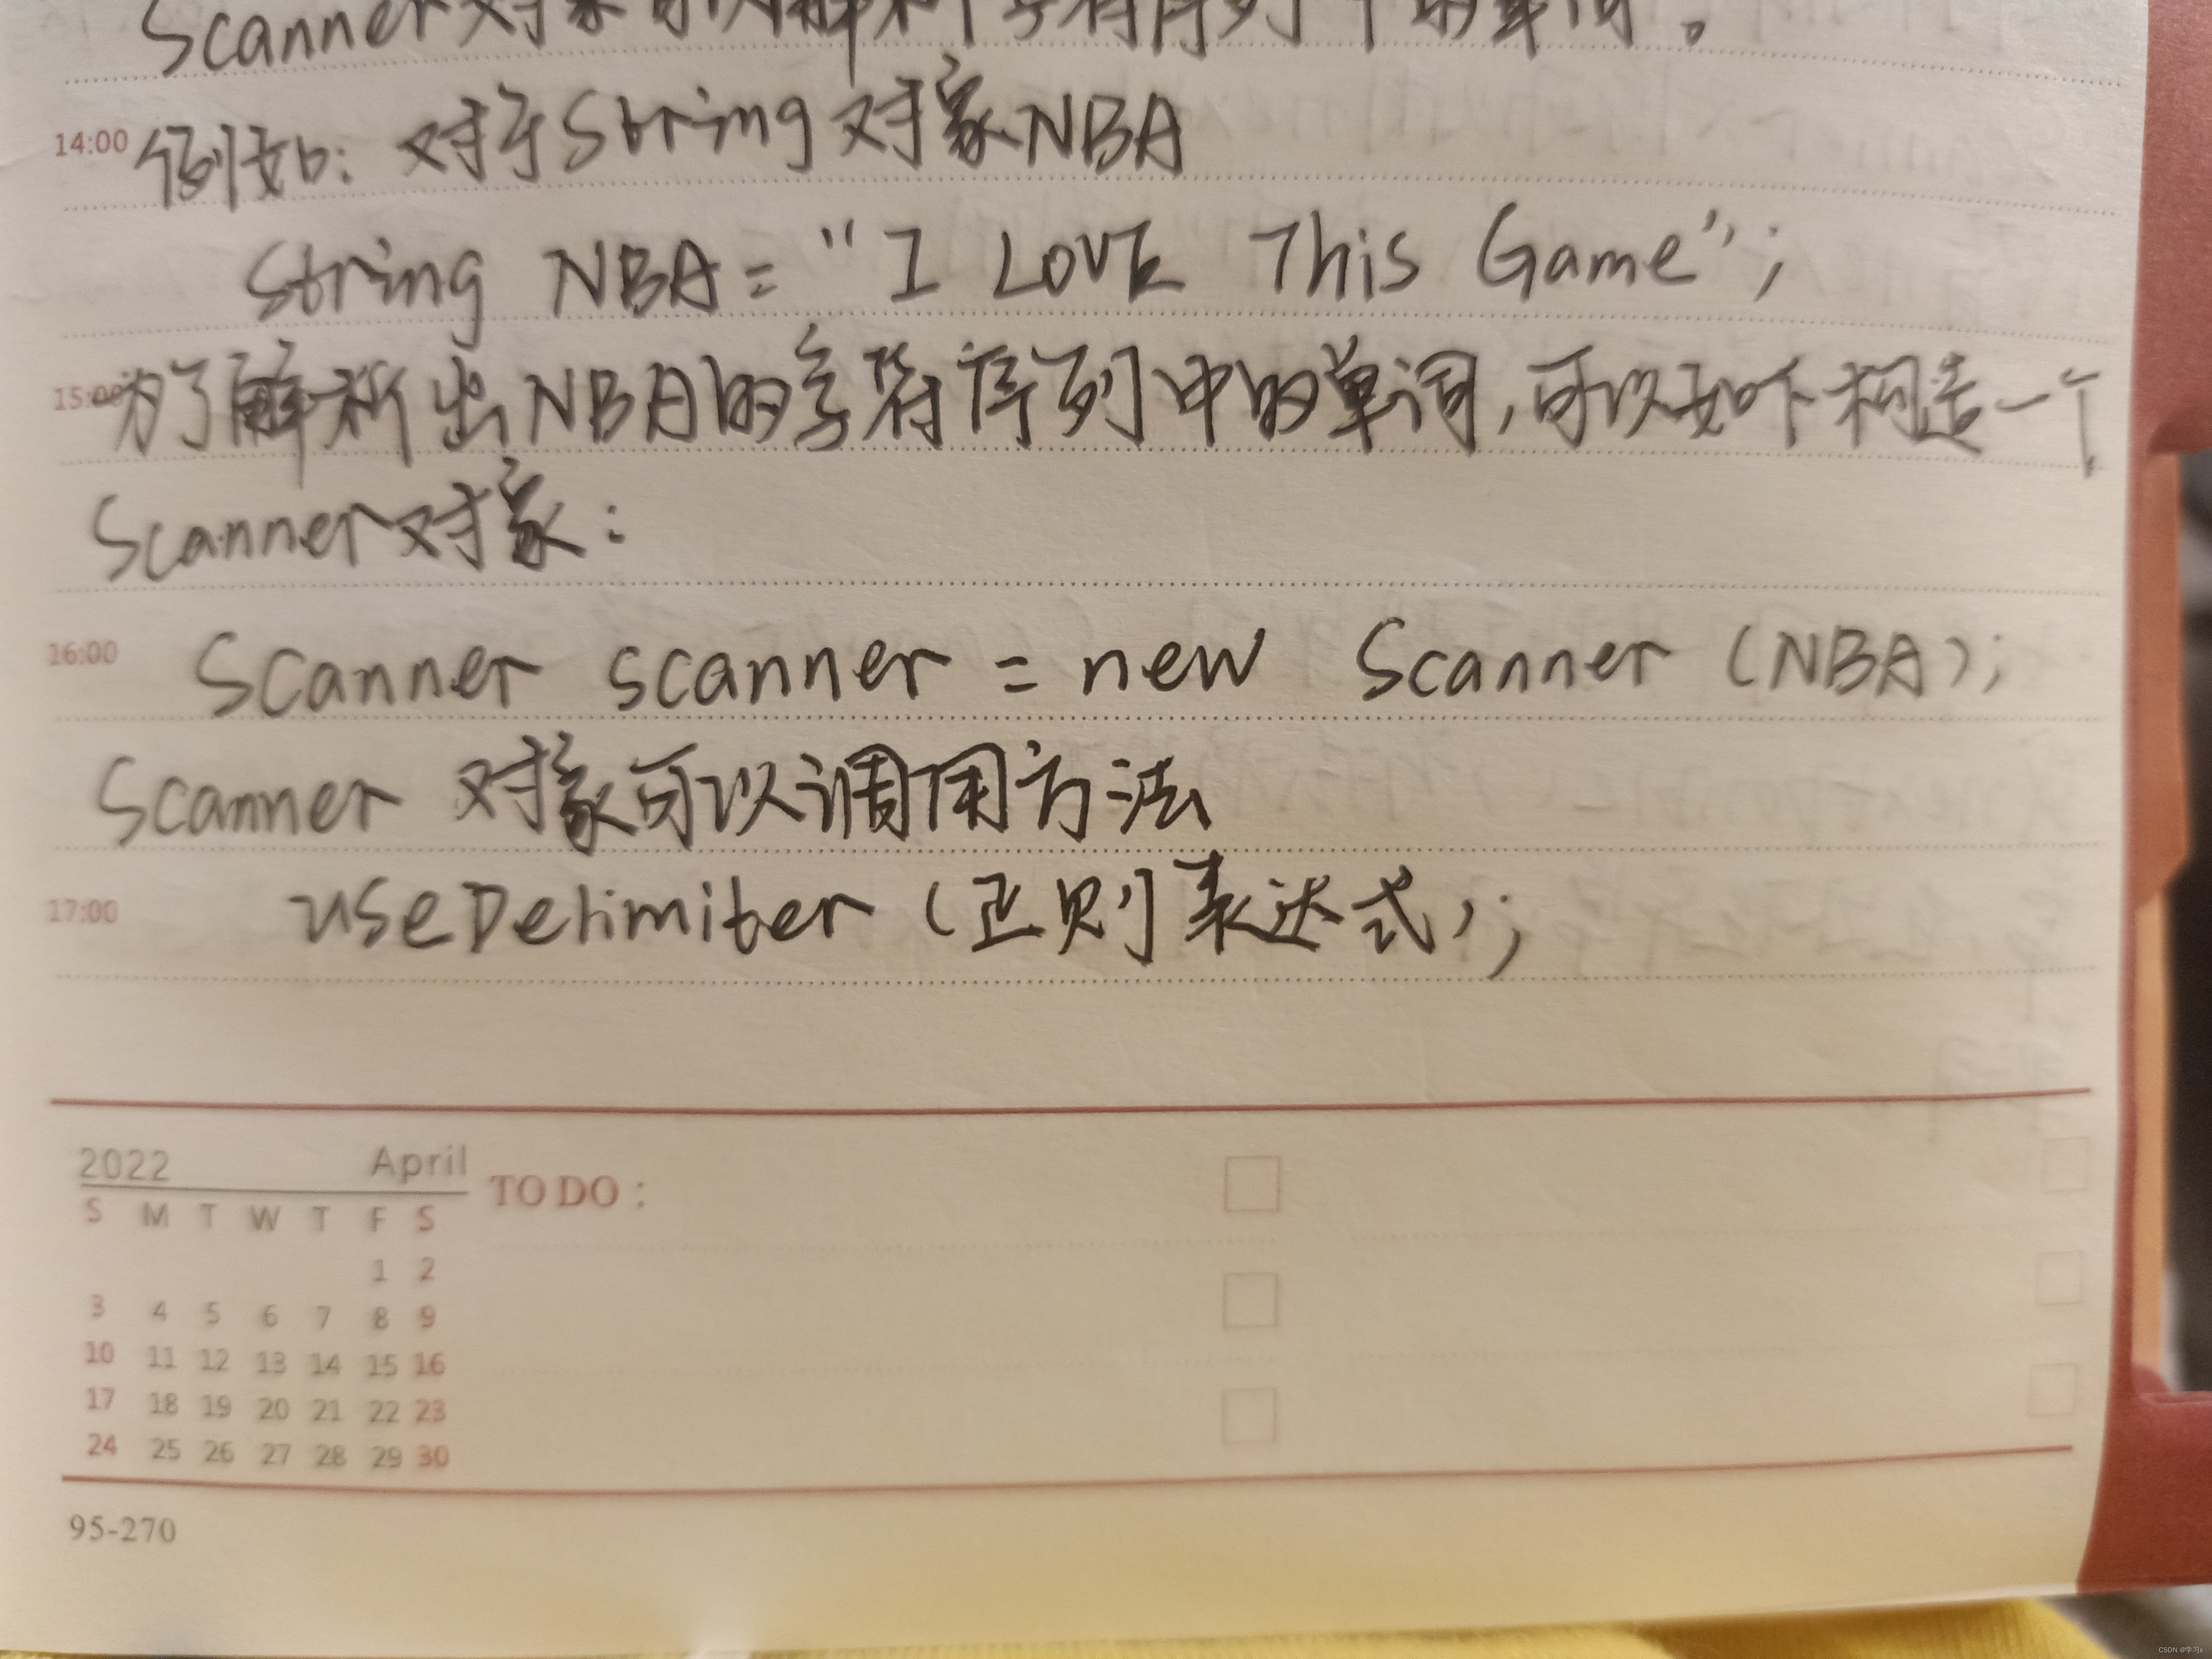 Scanner对象可以解析字符序列中的单词。
14:00 例如: 对于String对象NBA
String NBA = "I LOVE This Game";
15:00 为了解析出NBA的字符序列中的单词,可以如下构造一个
Scanner对象:
16:00 Scanner scanner = new Scanner (NBA);
Scanner 对象可以调用方法
17:00 useDelimiter (正则表达式);
2022 April
S M T W T F S
1 2
3 4 5 6 7 8 9
10 11 12 13 14 15 16
17 18 19 20 21 22 23
24 25 26 27 28 29 30
TO DO :
95-270
CSDN @学习x